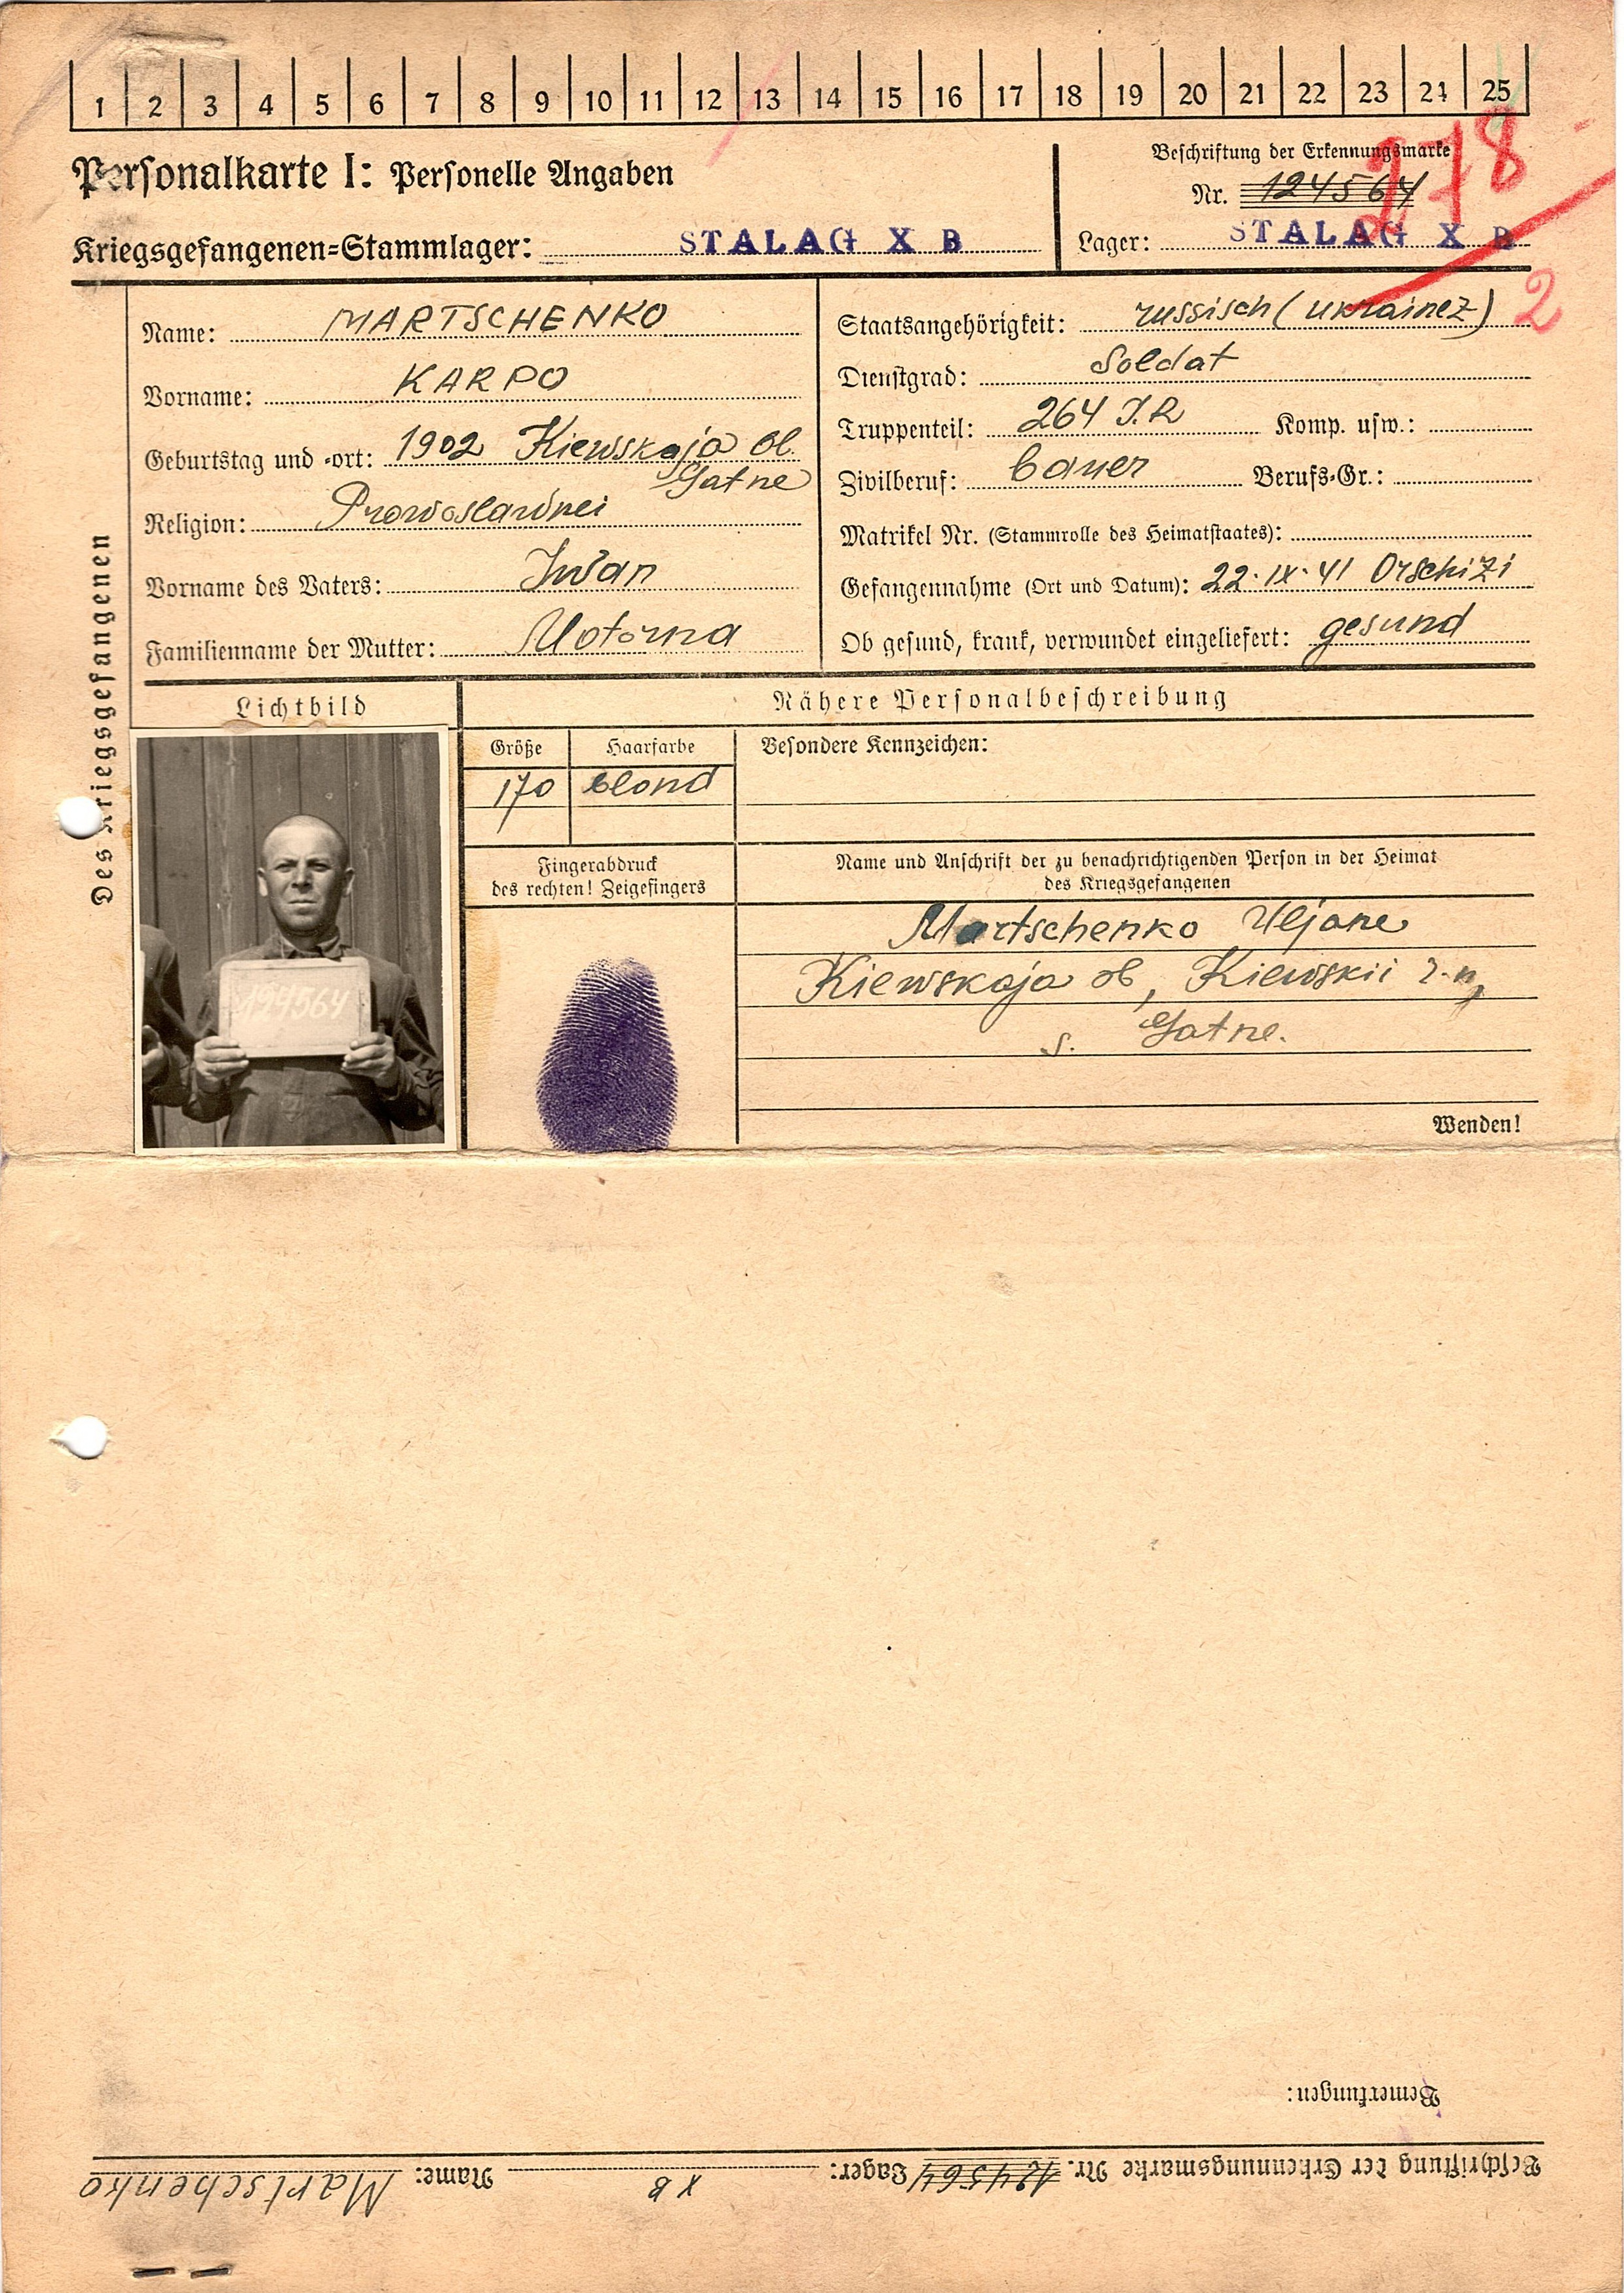 1 2 3 4 5 6 7 8 9 10 11 12 13 14 15 16 17 18 19 20 21 22 23 24 25
Personalkarte I: Personelle Angaben
Beschriftung der Erkennungsmarke
Nr. 124564
278
Kriegsgefangenen-Stammlager: STALAG X B
Lager: STALAG X B
2
Des Kriegsgefangenen
Name: MARTSCHENKO
Vorname: KARPO
Geburtstag und -ort: 1902 Kiewskaja Ob.
Gatne
Religion: Prowoslawnei
Vorname des Vaters: Iwan
Familienname der Mutter: Motorna
Staatsangehörigkeit: russisch (ukrainez)
Dienstgrad: Soldat
Truppenteil: 264 I.R Komp. usw.:
Zivilberuf: bauer Berufs-Gr.:
Matrikel Nr. (Stammrolle des Heimatstaates):
Gefangennahme (Ort und Datum): 22.IX.41 Orschizi
Ob gesund, krank, verwundet eingeliefert: gesund
Lichtbild
124564
Nähere Personalbeschreibung
Größe Haarfarbe Besondere Kennzeichen:
170 blond
Fingerabdruck
des rechten! Zeigefingers
Name und Anschrift der zu benachrichtigenden Person in der Heimat
des Kriegsgefangenen
Martschenko Uljane
Kiewskaja ob, Kiewskii r-n,
s. Gatne.
Wenden!
Bemerkungen:
Beschriftung der Erkennungsmarke Nr. 124564 Lager: X B Name: Martschenko